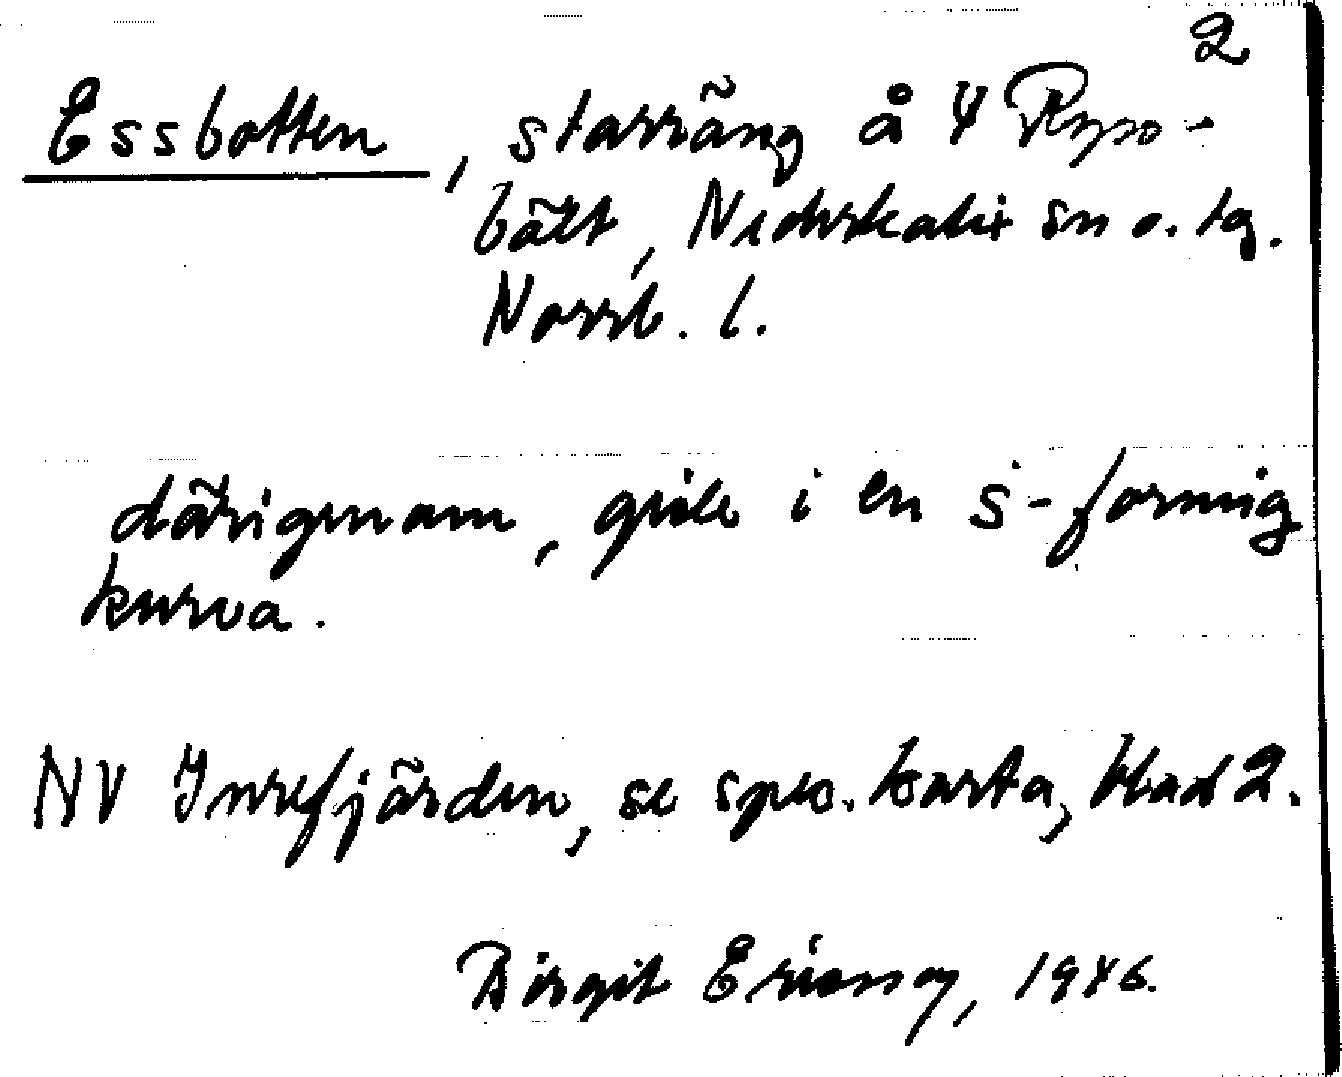 2
Essbotten, starräng å 4 Ryss-
bält, Nederkalix sn o. tg.
Norrb. l.
därigenom, gick i en s-formig
kurva.
NV Inrefjärden, se spec. karta, blad 2.
Birgit Ericson, 1946.